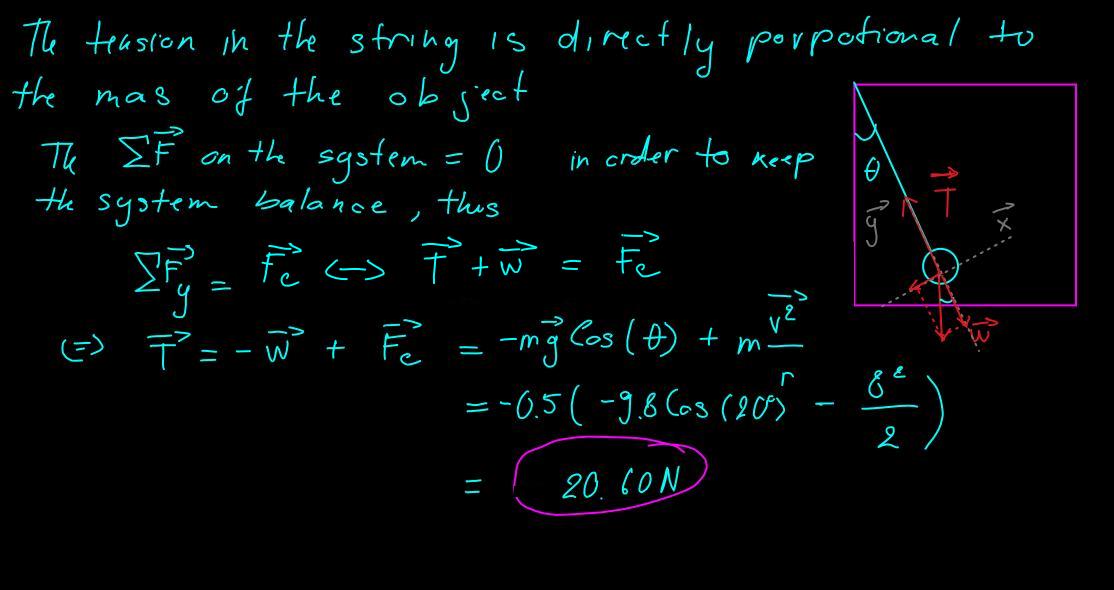 The tension in the string is directly porpotional to
the mas of the object
The ΣF⃗ on the system = 0 in order to keep
the system balance, thus
ΣF⃗y = F⃗c ⟺ T⃗ + w⃗ = F⃗c
⟺ T⃗ = -w⃗ + F⃗c = -mg⃗ Cos(θ) + m v⃗²/r
= -0.5( -9.8 Cos(20°) - 8²/2 )
= 20.60N
θ
T⃗
y⃗
x⃗
w⃗